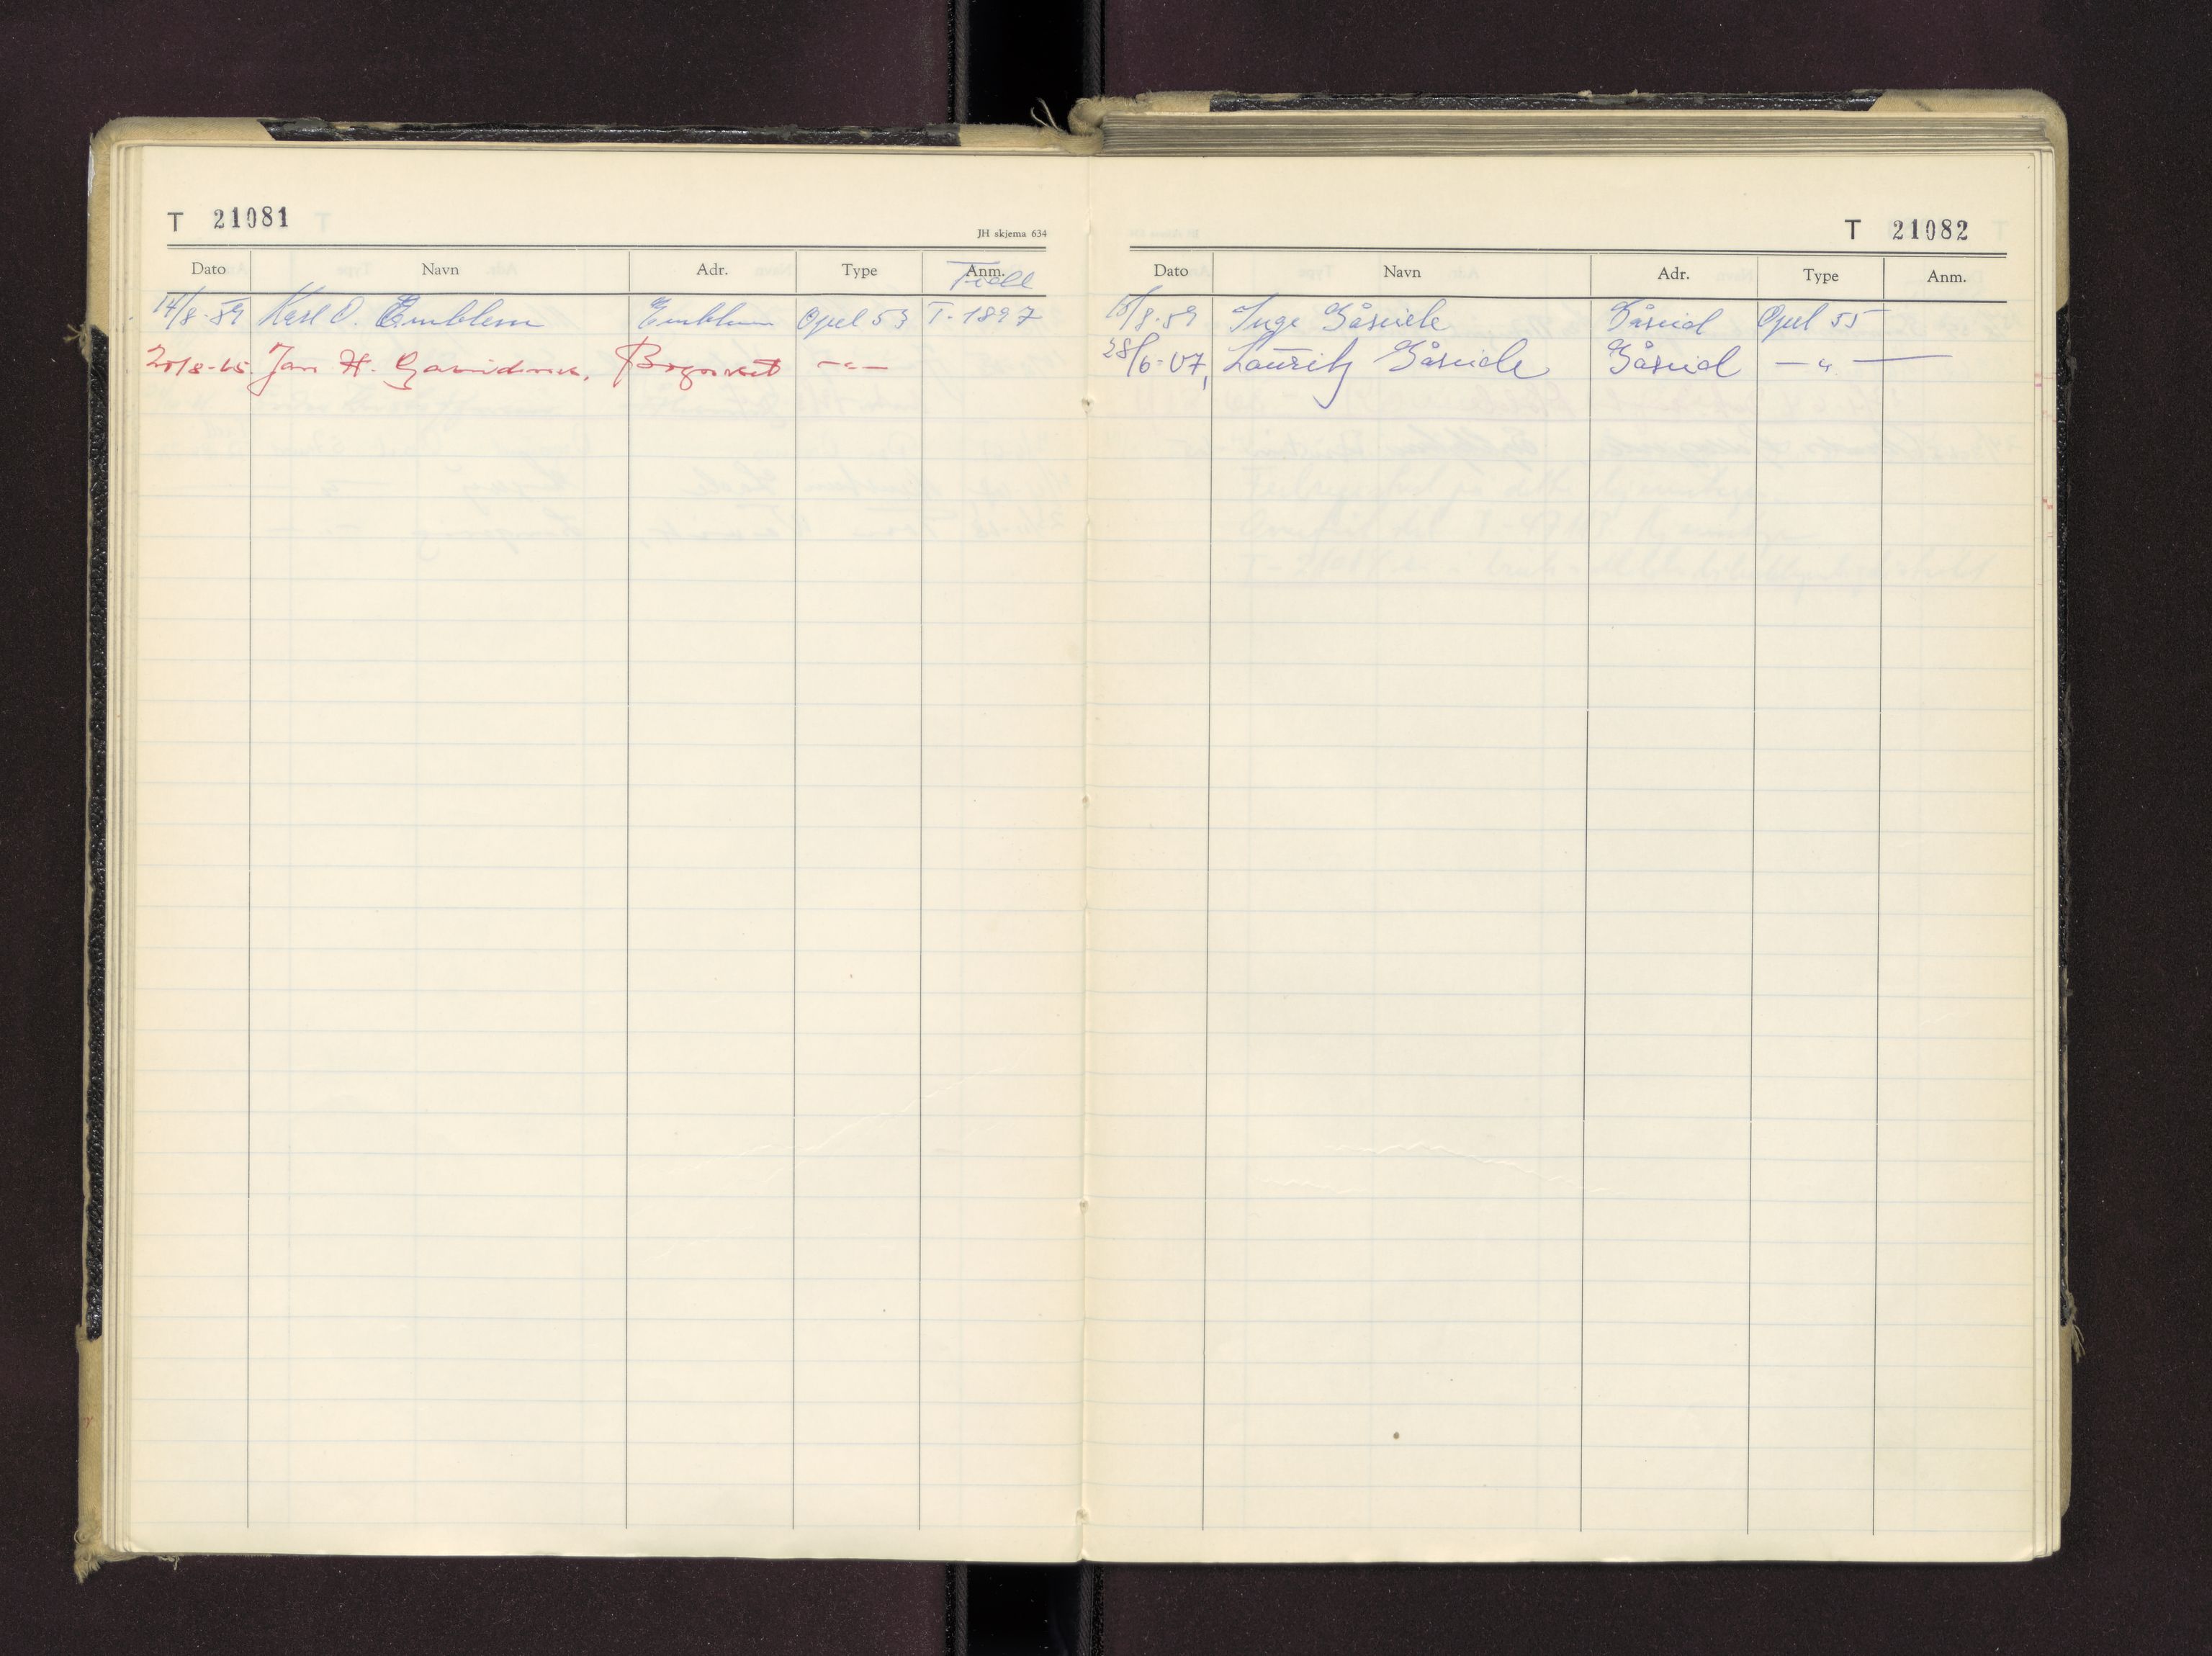 T 21081
JH skjema 634
Dato Navn Adr. Type Anm.
14/8-59 Karl O. Emblem Emblem Opel 53 T-1897
20/8-65. Jan H. Bogsnes -"-
T 21082
Dato Navn Adr. Type Anm.
/8-59 Inge Gåseide Gåseid Opel 55
28/6-67, Lauritz Gåseide Gåseid — " —